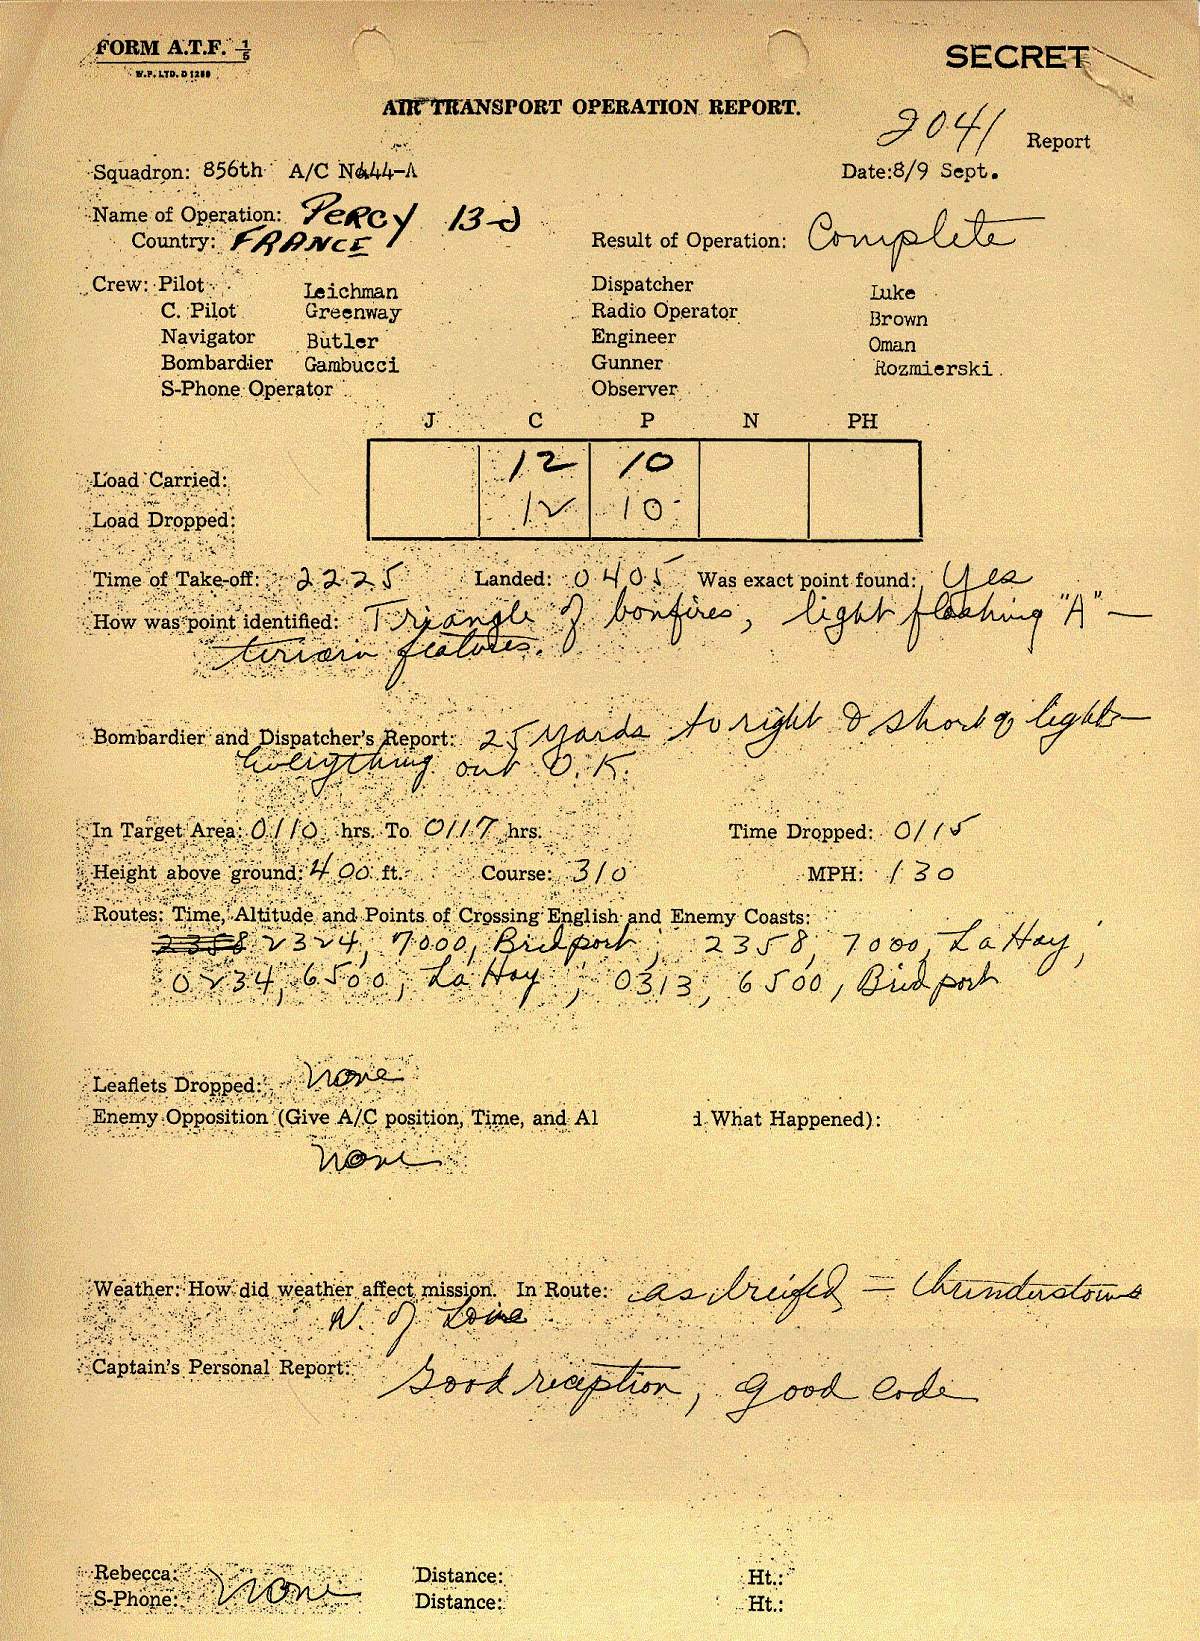 FORM A.T.F. 1/5
W.P. LTD. D 1289
SECRET
AIR TRANSPORT OPERATION REPORT.
2041 Report
Squadron: 856th A/C No. 444-A Date: 8/9 Sept.
Name of Operation: PERCY 13-
Country: FRANCE Result of Operation: Complete
Crew: Pilot Leichman Dispatcher Luke
C. Pilot Greenway Radio Operator Brown
Navigator Butler Engineer Oman
Bombardier Gambucci Gunner Rozmierski
S-Phone Operator Observer
J C P N PH
Load Carried: 12 10
Load Dropped: 12 10
Time of Take-off: 2225 Landed: 0405 Was exact point found: Yes
How was point identified: Triangle of bonfires, light flashing "A" —
features.
Bombardier and Dispatcher's Report: 25 yards to right & short of lights —
Everything out O.K.
In Target Area: 0110 hrs. To 0117 hrs. Time Dropped: 0115
Height above ground: 400 ft. Course: 310 MPH: 130
Routes: Time, Altitude and Points of Crossing English and Enemy Coasts:
2358 2324, 7000, Bridport; 2358, 7000, La Hay;
0234, 6500, La Hay; 0313, 6500, Bridport
Leaflets Dropped: None
Enemy Opposition (Give A/C position, Time, and Al d What Happened):
None
Weather: How did weather affect mission. In Route: as briefed = thunderstorms
N. of Loire
Captain's Personal Report: Good reception, good code
Rebecca: Distance: Ht.:
S-Phone: None Distance: Ht.: